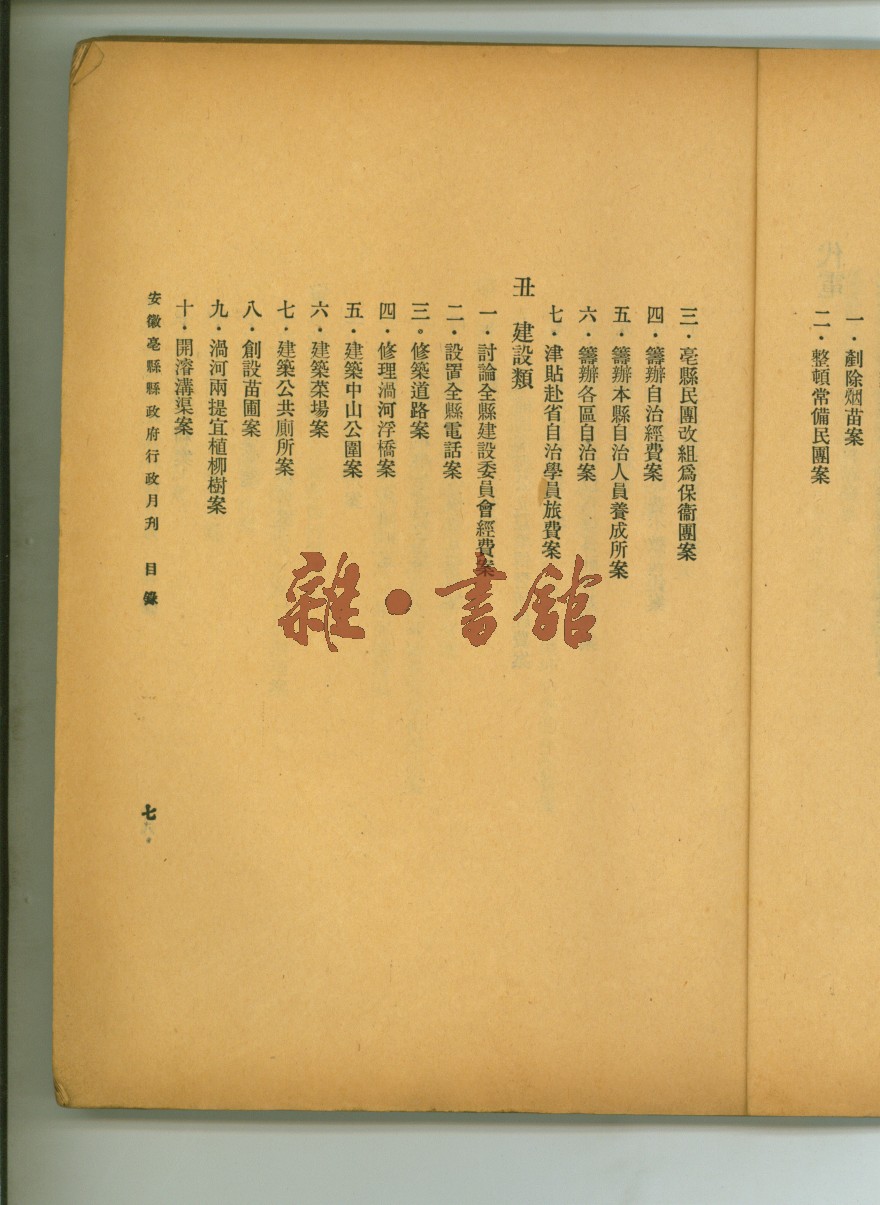 一・剷除烟苗案
二・整頓常備民團案
三・亳縣民團改組爲保衞團案
四・籌辦自治經費案
五・籌辦本縣自治人員養成所案
六・籌辦各區自治案
七・津貼赴省自治學員旅費案
丑　建設類
一・討論全縣建設委員會經費案
二・設置全縣電話案
三。修築道路案
四・修理渦河浮橋案
五・建築中山公園案
六・建築菜場案
七・建築公共廁所案
八・創設苗圃案
九・渦河兩提宜植柳樹案
十・開濬溝渠案
安徽亳縣縣政府行政月刋　目錄
七
雜・書館